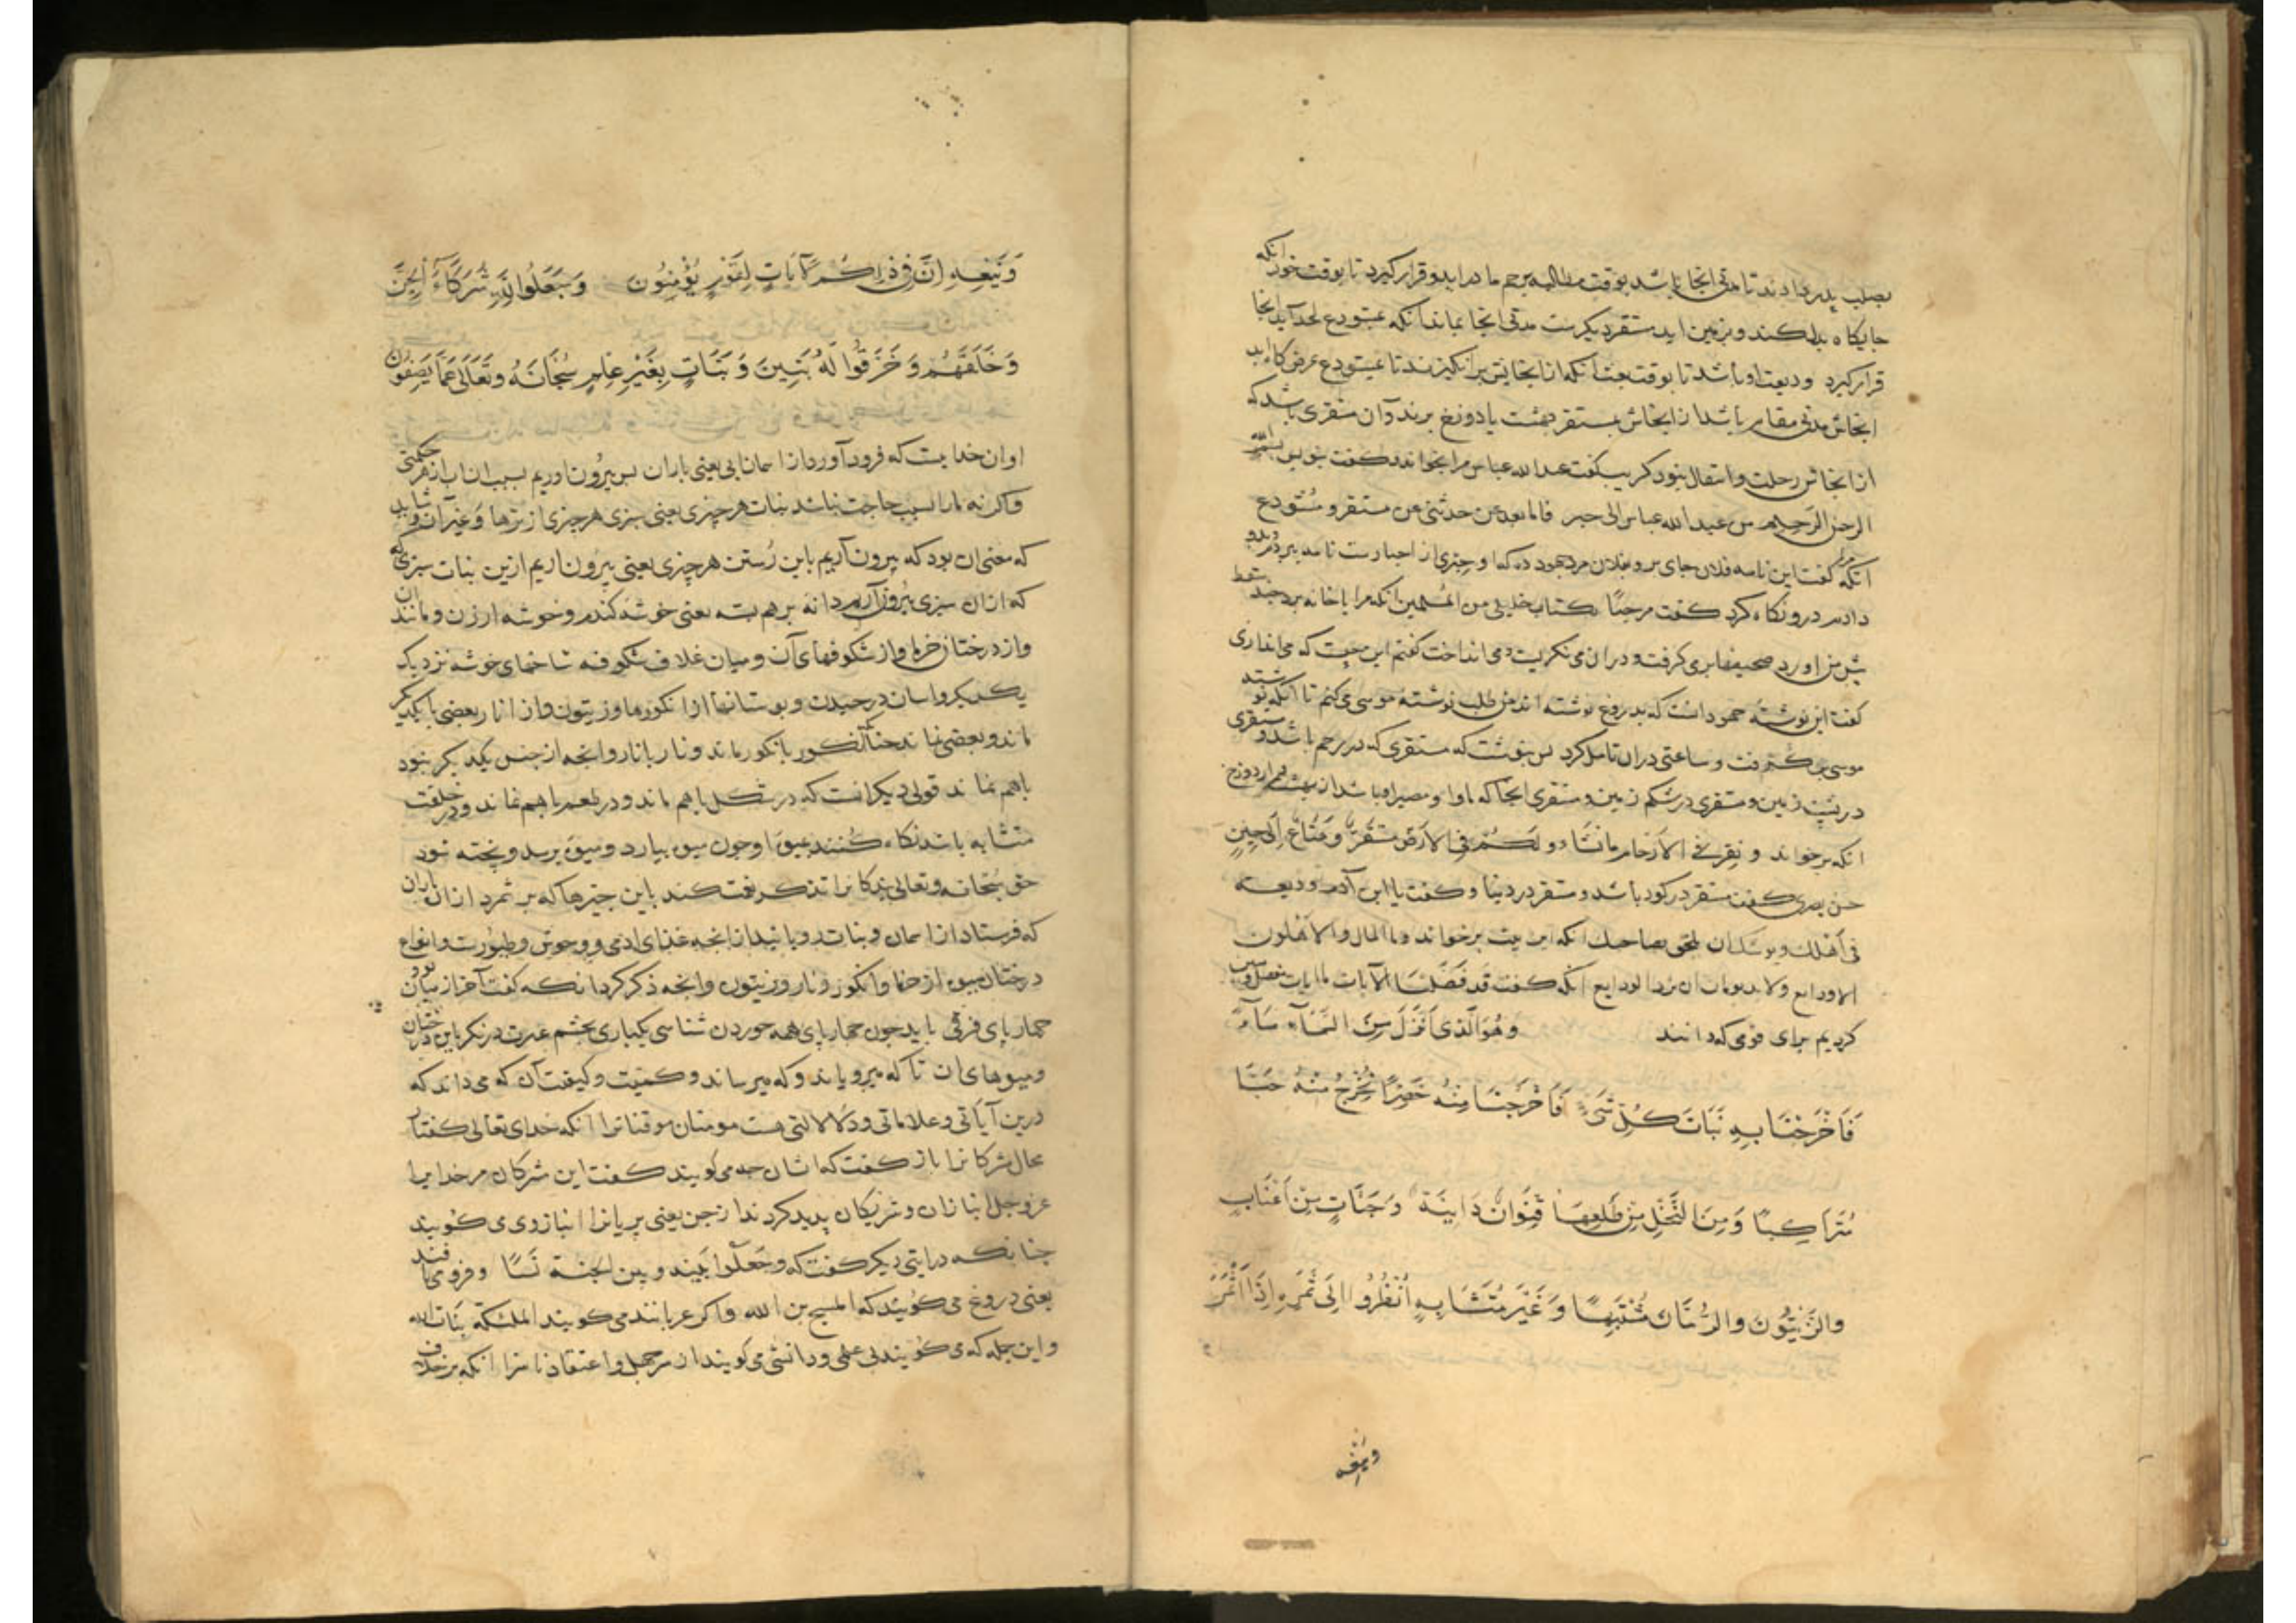 بصلب پدر دادند تا مدتی انجا باشد بوقت مطالبه برحم مادر اید و قرار کیرد تا بوقت خود انکه
جایکاه بدل کند و بزمین اید مستقر دیکرست مدتی انجا بماند انکه بمستودع لحد آید انجا
قرار کیرد ودیعت او باشد تا بوقت بعث انکه از انجایش برانکیزند تا بمستودع عرض کاه اید
انجاش مدتی مقام باشد از انجاش بمستقر بهشت یا دوزخ برند و آن مستقری باشد که
از انجاش رحلت و انتقال نبود کریب کفت عبد الله عباس مرا بخواند و کفت بنویس بسم الله
الرحمن الرحیم من عبد الله عباس الی حبر فاما بعد عن حدثنی عن مستقر و مستودع
انکه کفت این نامه فلان جای بر و بفلان مرد جهود ده که او حبری از احبارست نامه ببردم بدو
دادم درو نکاه کرد کفت مرحبًا بکتاب خلیلی من المسلمین انکه مرا با خانه برد
پیش من اورد صحیفها بر می کرفت و در ان می نکریست و می انداخت کفتم این چیست که می اندازی
کفت این نوشتهٔ جهودانست که بدروغ نوشته اند من طلب نوشتهٔ موسی می کنم تا انکه
موسی بن کشم رفت و ساعتی در ان تامل کرد بس بنوشت که مستقری که در رحم باشد و مستقری
در پشت زمین و مستقری در شکم زمین و مستقری انجا که ماوا و مصیر او باشد از بهشت و از دوزخ
انکه برخواند و نقر فی الارحام ما نشاء و لکم فی الارض مستقر و متاع الی حین
حسن بصری کفت مستقر در کور باشد و مستقر در دنیا و کفت یا ابن آدم ودیعت
فی اهلک ویوشک ان تلحق بصاحبک انکه این بیت برخواند وما المال والاهلون
الا ودایع ولا بد یوما ان ترد الودایع انکه کفت قد فصلنا الآیات ما ایات مفصل و مبین
کردیم برای قومی که دانند وهُوَ الَّذِی اَنْزَلَ مِنَ السَّمَاءِ مَاءً
فَاَخْرَجْنَا بِهِ نَبَاتَ کُلِّ شَیْءٍ فَاَخْرَجْنَا مِنْهُ خَضِرًا نُخْرِجُ مِنْهُ حَبًّا
مُتَرَاکِبًا وَمِنَ النَّخْلِ مِنْ طَلْعِهَا قِنْوَانٌ دَانِیَةٌ وَجَنَّاتٍ مِنْ اَعْنَابٍ
والزَّیْتُونَ والرُّمَّانَ مُشْتَبِهًا وَغَیْرَ مُتَشَابِهٍ اُنْظُرُوا اِلَی ثَمَرِهِ اِذَا اَثْمَرَ
وینعه
وَیَنْعِهِ اِنَّ فِی ذٰلِکُمْ لَآیَاتٍ لِقَوْمٍ یُؤْمِنُونَ وَجَعَلُوا لِلّٰهِ شُرَکَاءَ الْجِنَّ
وَخَلَقَهُمْ وَخَرَقُوا لَهُ بَنِینَ وَبَنَاتٍ بِغَیْرِ عِلْمٍ سُبْحَانَهُ وَتَعَالَی عَمَّا یَصِفُونَ
او ان خدایست که فرود آورد از اسمان ابی یعنی باران بس بیرون اوریم بسبب ان اب از فر حکمتی
و اکر نه ما را بسبب حاجت نباشد نبات هر چیزی یعنی سبزی هر چیزی از ترها و غیر آن و شاید
که معنی ان بود که بیرون آریم باین رستن هر چیزی یعنی بیرون اریم ازین نبات سبزی که
که از ان سبزی بیرون آریم دانه بر هم بسته یعنی خوشه کندم و خوشه ارزن و مانند ان
و از درختان خرما و از شکوفهای آن و میان غلاف شکوفه شاخهای خوشه نزدیک
یک بدیکر و اسان در چیدن و بوستانها از انکورها و زیتون و از انار بعضی با یکدیکر
ماند و بعضی نماند چنانکه انکور بانکور ماند و نار بانار و انچه از جنس یکدیکر نبود
باهم نماند قولی دیکر انست که در شکل باهم ماند و در طعم باهم نماند و در خلقت
متشابه باشد نکاه کنند بمیوهٔ او چون میوه بیارد و میوه برسد و پخته شود
حق سبحانه وتعالی بندکانرا تذکر نعمت کند باین چیزها که بر شمرد از ان باران
که فرستاد از اسمان و نبات رویانید از انچه غذای ادمی و وحوش و طیورست و انواع
درختان میوه از خرما و انکور و نار و زیتون و انچه ذکر کرد انکه کفت آخر از میان تو و
چهار پای فرقی باید چون چهار پای همه خوردن شناسی یکباری بچشم عبرت در نکر باین درختان
و میوهای ان تا که میرویاند و که میرساند و کمیت و کیفیت آن که می داند که
درین آیاتی و علاماتی و دلالالتی هست مومنان موقنانرا انکه خدای تعالی کفت آ
محال مشرکانرا باز کفت که اشان چه می کویند کفت این مشرکان مر خدایرا
عز و جل انبازان و شریکان پدید کردند از جن یعنی پریانرا انباز وی می کویند
چنانکه در ایتی دیکر کفت که وجعلوا بینه وبین الجنة نسبًا و فرو می بافند
یعنی دروغ می کویند که المسیح بن الله و اکر عربانند می کویند الملئکة بنات الله
و این جمله که می کویند بی علمی و دانشی می کویند از سر جهل و اعتقاد ناسزا انکه بر خلاف